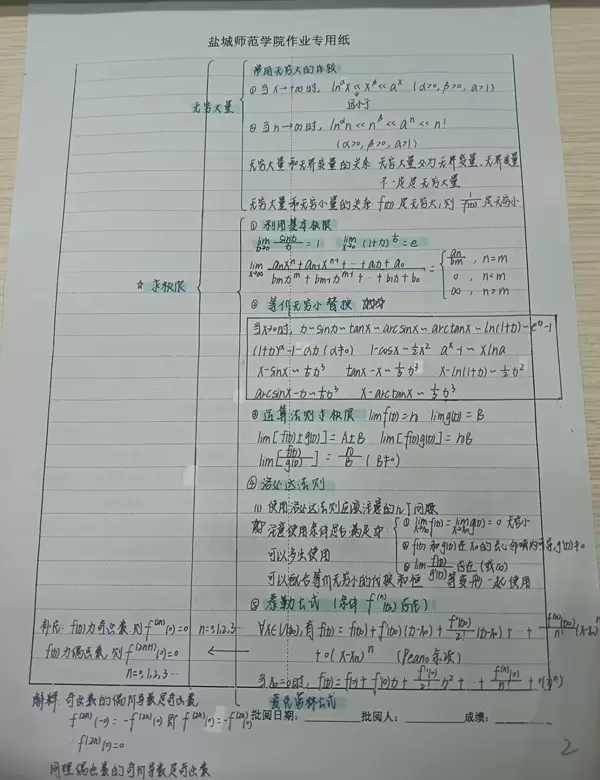 盐城师范学院作业专用纸
常用无穷大的阶数
① 当 x→+∞时, lnᵅx << xᵝ << aˣ (α>0, β>0, a>1)
远小于
无穷大量
② 当 n→∞时, lnᵅn << nᵝ << aⁿ << n!
(α>0, β>0, a>1)
无穷大量和无界变量的关系: 无穷大量必为无界变量, 无界变量
不一定是无穷大量
无穷大量和无穷小量的关系: f(x) 是无穷大, 则 1/f(x) 是无穷小
☆ 求极限
① 利用基本极限
lim x→0 sinx/x = 1 lim x→0 (1+x)^(1/x) = e
lim x→∞ (aₙxⁿ + aₙ₋₁xⁿ⁻¹ + ⋯ + a₁x + a₀)/(bₘxᵐ + bₘ₋₁xᵐ⁻¹ + ⋯ + b₁x + b₀) = { aₙ/bₘ , n=m
0 , n<m
∞ , n>m
② 等价无穷小替换
当x→0时, x~sinx~tanx~arcsinx~arctanx~ln(1+x)~eˣ-1
(1+x)ᵅ-1~αx (α≠0) 1-cosx~½x² aˣ-1~xlna
x-sinx~1/6x³ tanx-x~1/3x³ x-ln(1+x)~½x²
arcsinx-x~1/6x³ x-arctanx~1/3x³
③ 运算法则求极限 limf(x)=A limg(x)=B
lim[f(x)±g(x)]=A±B lim[f(x)g(x)]=AB
lim[f(x)/g(x)] = A/B (B≠0)
④ 洛必达法则
(1) 使用洛必达法则应该注意的几个问题
注意使用条件是否满足
① lim x→x₀ f(x) = lim x→x₀ g(x) = 0 无穷小
② f(x)和g(x)在x₀的去心邻域内可导, g'(x)≠0
③ lim f'(x)/g'(x) 存在(或∞)
可以多次使用
可以配合等价无穷小的代换和恒等变形一起使用
⑤ 泰勒公式 (条件 f⁽ⁿ⁾(x₀) 存在)
∀x∈U(x₀), 有 f(x) = f(x₀) + f'(x₀)(x-x₀) + f''(x₀)/2! (x-x₀)² + ⋯ + f⁽ⁿ⁾(x₀)/n! (x-x₀)ⁿ
+ o(x-x₀)ⁿ (Peano余项)
当x₀=0时, f(x) = f(0) + f'(0)x + f''(0)/2! x² + ⋯ + f⁽ⁿ⁾(0)/n! + o(xⁿ)
麦克劳林公式
补充: f(x)为奇函数, 则 f⁽²ⁿ⁾(0)=0 n=0,1,2,3⋯
f(x)为偶函数, 则 f⁽²ⁿ⁺¹⁾(0)=0
n=0,1,2,3⋯
解释: 奇函数的偶阶导数是奇函数
f⁽²ⁿ⁾(-0) = -f⁽²ⁿ⁾(0) 即 f⁽²ⁿ⁾(0) = -f⁽²ⁿ⁾(0)
f⁽²ⁿ⁾(0)=0
同理偶函数的奇阶导数是奇函数
批阅日期: 批阅人: 成绩:
2